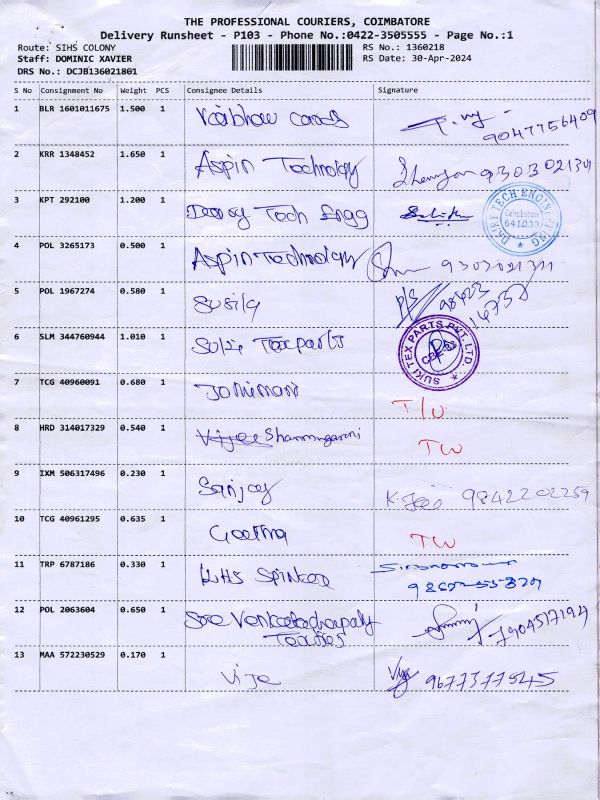 THE PROFESSIONAL COURIERS, COIMBATORE
Delivery Runsheet - P103 - Phone No.:0422-3505555 - Page No.:1
Route: SIHS COLONY
Staff: DOMINIC XAVIER
DRS No.: DCJB136021801
RS No.: 1360218
RS Date: 30-Apr-2024
S No Consignment No Weight PCS Consignee Details Signature
1 BLR 1601011675 1.500 1 Vaibhav Cards
9047756409
2 KRR 1348452 1.650 1 Aspin Technology 9303021301
3 KPT 292100 1.200 1 Tech Engg
DAIRY TECH ENGINEERING
Coimbatore
641033
4 POL 3265173 0.500 1 Aspin Technology
5 POL 1967274 0.580 1 Susila
6 SLM 344760944 1.010 1 Texparts
SUKI TEX PARTS PVT. LTD.
CBE-33
7 TCG 40960091 0.680 1 T/W
8 HRD 314017329 0.540 1 TW
9 IXM 506317496 0.230 1 Sanjay 9842202259
10 TCG 40961295 0.635 1 Geetha TW
11 TRP 6787186 0.330 1 KHS
12 POL 2063604 0.650 1 Sree Venkatachalapathy
13 MAA 572230529 0.170 1 Vije 9677377545